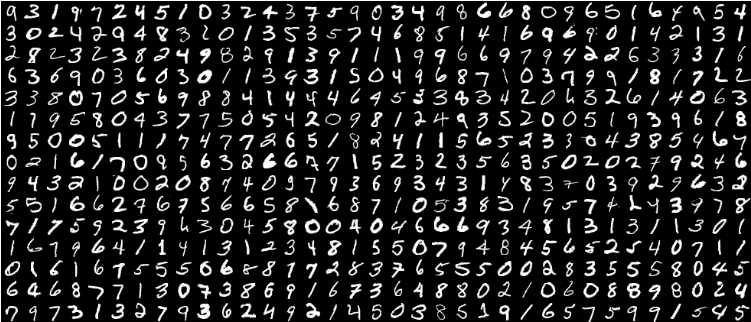 9 3 1 9 7 2 4 5 1 0 3 2 2 4 3 7 5 9 0 3 4 9 8 6 6 8 0 9 6 5 1 6 4 9 5 4
3 0 2 4 2 9 4 8 3 2 0 1 3 5 3 5 7 4 6 8 5 1 4 1 6 9 6 9 0 1 4 2 1 3 1
2 8 2 3 2 3 8 2 4 9 8 2 9 1 3 9 1 1 1 9 9 6 6 9 7 9 4 2 2 6 3 3 3 1 6
6 3 6 9 0 3 6 0 3 0 1 1 3 9 3 1 5 0 4 9 6 8 7 1 0 3 7 9 9 1 8 1 7 2 2
3 3 8 0 7 0 5 6 9 8 8 4 1 4 4 4 6 4 5 3 3 8 3 4 2 0 6 3 2 6 1 4 0 6 3
1 7 9 5 8 0 4 3 7 7 5 0 5 4 2 0 9 8 1 2 4 9 3 5 2 0 0 5 1 9 3 9 6 1 8
9 5 0 0 5 1 1 1 7 4 7 7 2 6 5 1 8 2 4 1 1 5 6 5 2 3 3 0 4 3 8 5 4 6 7
0 2 1 6 1 7 0 9 5 6 3 2 6 6 7 7 1 5 2 3 2 3 5 6 3 5 0 2 0 2 7 9 2 4 6
9 4 3 2 1 0 0 2 0 8 7 4 0 9 7 9 3 6 9 3 4 3 1 4 8 3 7 0 3 9 2 9 6 3 2
5 5 1 6 6 2 7 6 7 5 6 6 5 8 1 6 8 7 1 0 5 3 8 3 1 9 5 7 4 2 4 3 9 7 8
7 1 7 5 9 2 3 9 6 3 0 4 5 8 0 0 4 0 4 6 6 6 9 3 4 8 1 3 1 3 1 1 3 0 1
1 6 7 9 6 4 1 1 4 1 3 1 2 3 4 8 1 5 5 0 7 9 4 8 4 5 6 5 2 5 4 0 7 1 1
0 1 6 1 6 7 5 5 5 0 6 8 8 7 7 2 8 3 7 6 5 5 5 0 0 2 8 3 5 5 5 8 0 4 5
6 4 6 8 7 7 1 3 0 7 3 8 6 9 1 6 7 3 6 4 8 8 0 2 1 0 6 0 8 8 9 8 0 2 4
7 9 7 3 1 3 2 7 9 3 6 2 4 9 2 1 4 5 0 3 8 5 1 9 1 6 5 7 5 9 9 1 5 4 5